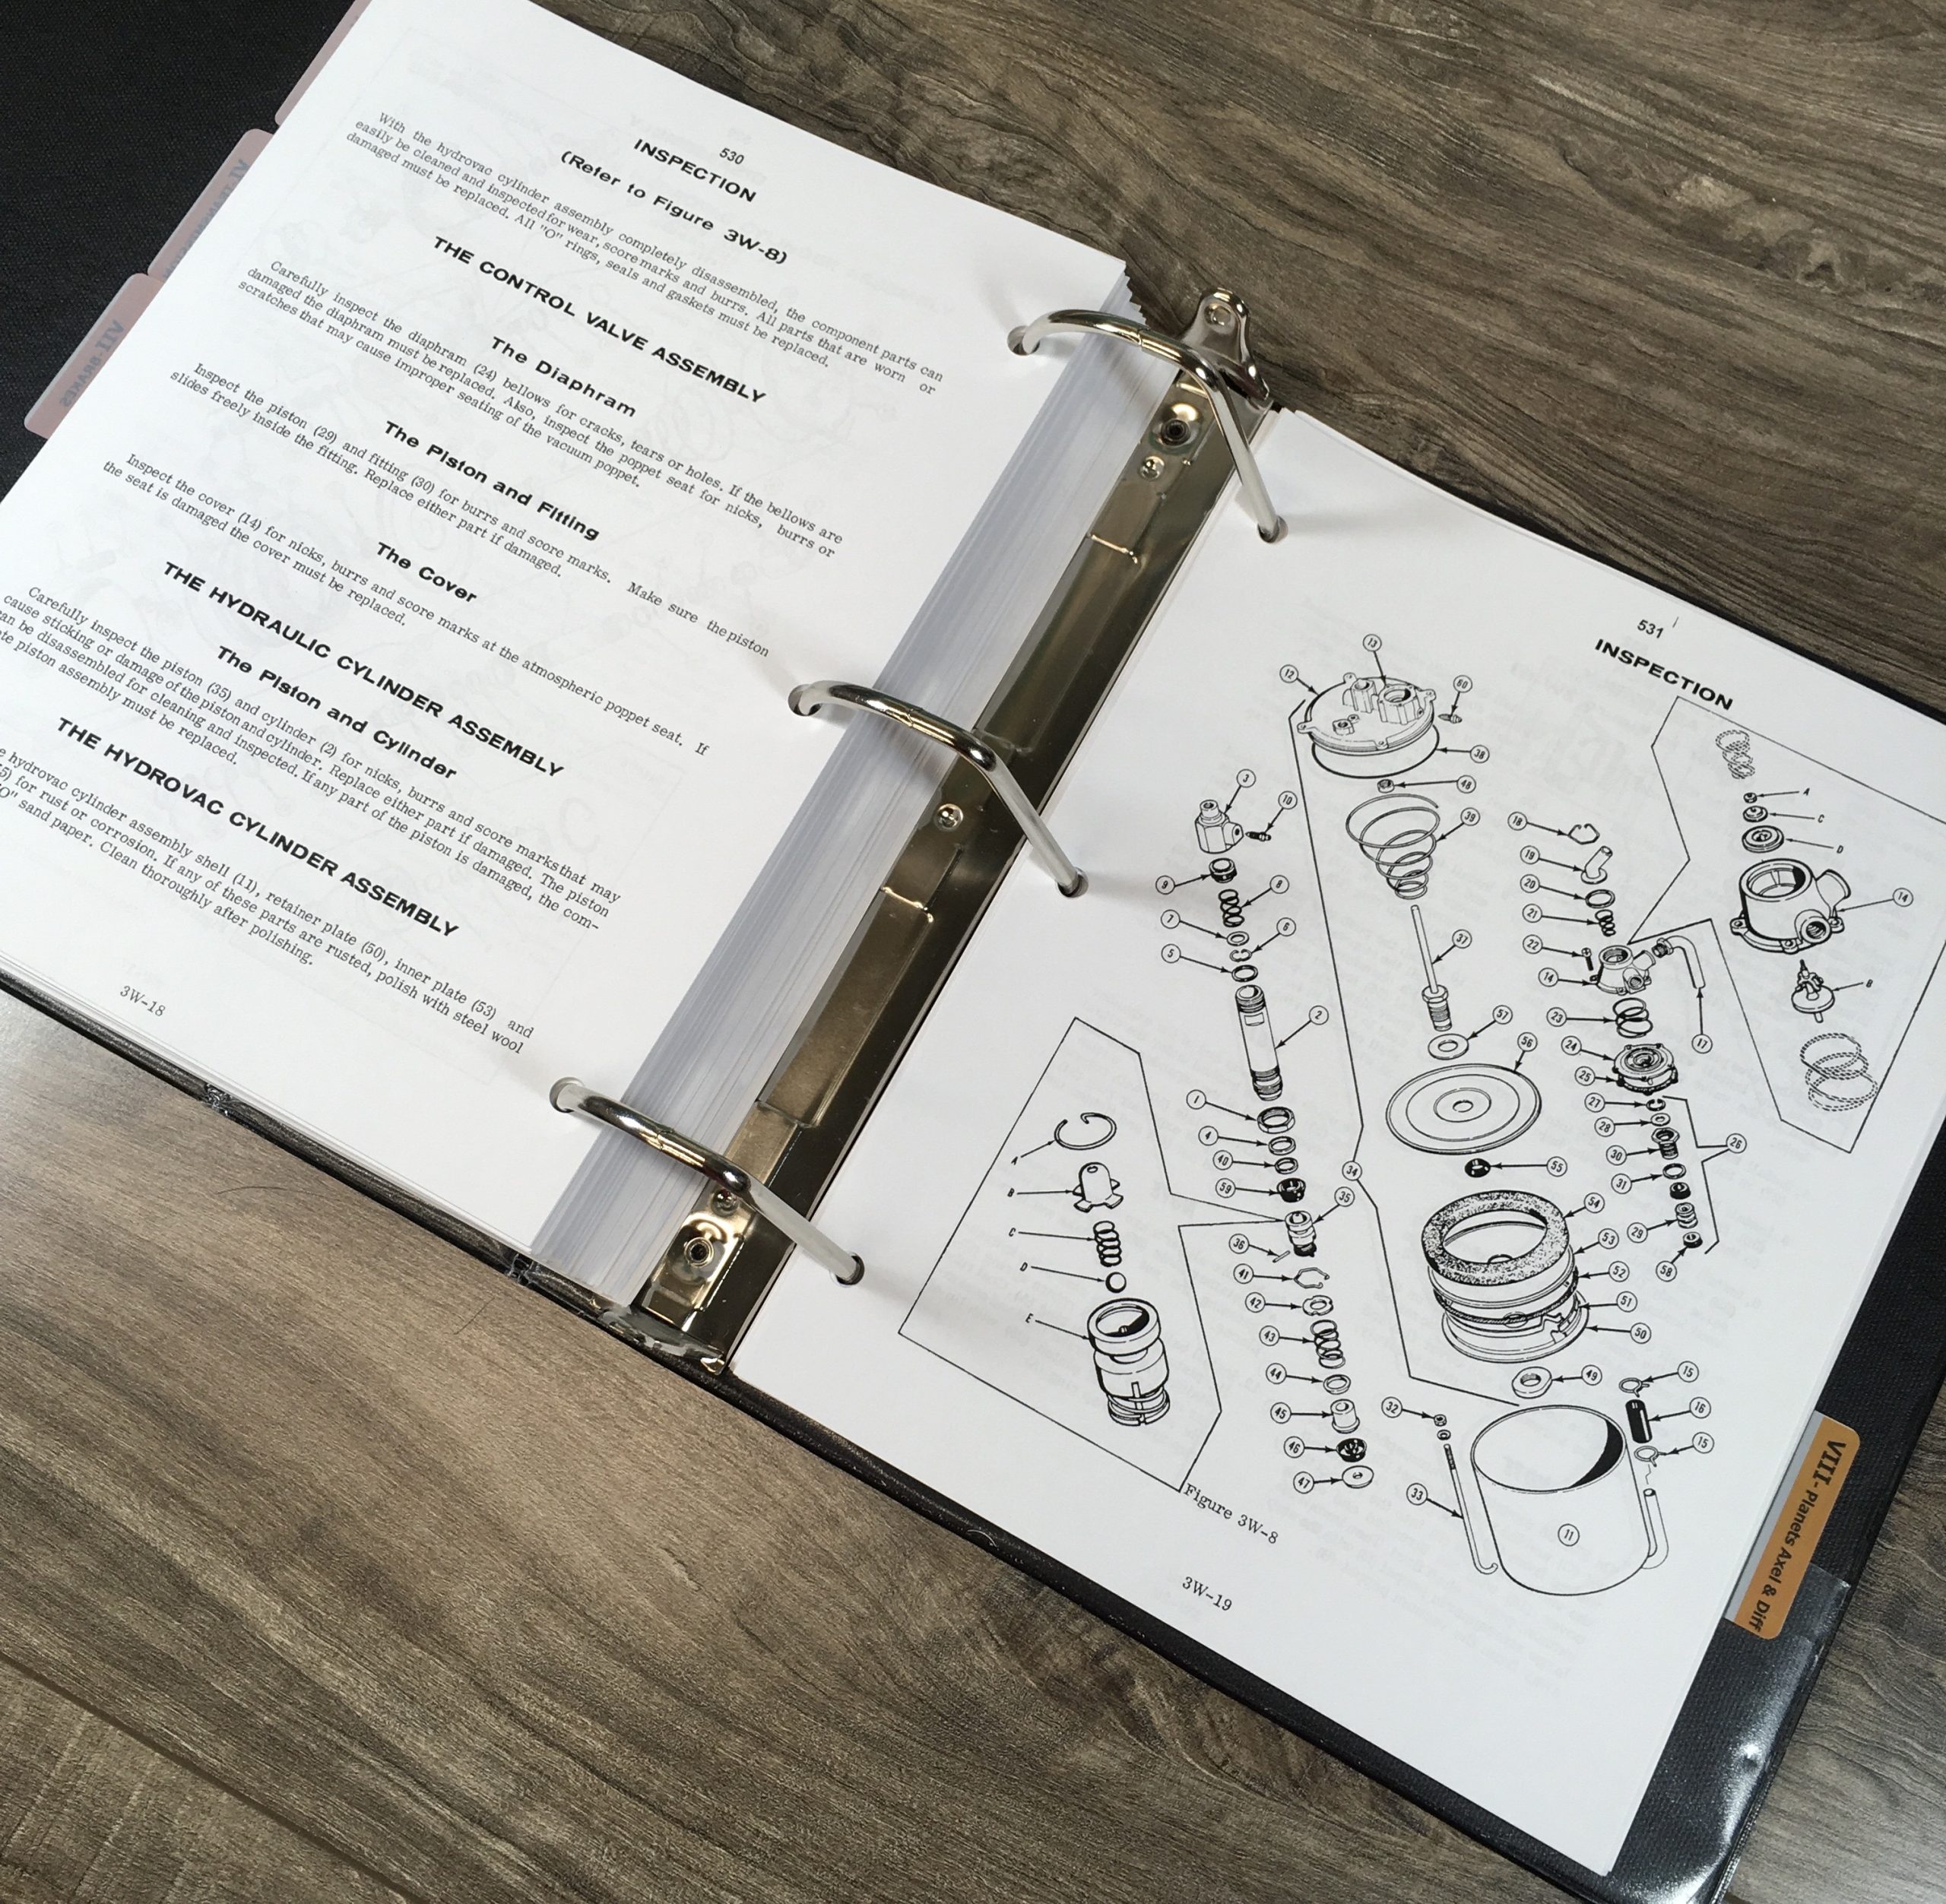 530
INSPECTION
(Refer to Figure 3W-8)
With the hydrovac cylinder assembly completely disassembled, the component parts can
easily be cleaned and inspected for wear, score marks and burrs. All parts that are worn or
damaged must be replaced. All "O" rings, seals and gaskets must be replaced.
THE CONTROL VALVE ASSEMBLY
The Diaphram
Carefully inspect the diaphram (24) bellows for cracks, tears or holes. If the bellows are
damaged the diaphram must be replaced. Also, inspect the poppet seat for nicks, burrs or
scratches that may cause improper seating of the vacuum poppet.
The Piston and Fitting
Inspect the piston (29) and fitting (30) for burrs and score marks. Make sure the piston
slides freely inside the fitting. Replace either part if damaged.
The Cover
Inspect the cover (14) for nicks, burrs and score marks at the atmospheric poppet seat. If
the seat is damaged the cover must be replaced.
THE HYDRAULIC CYLINDER ASSEMBLY
The Piston and Cylinder
Carefully inspect the piston (35) and cylinder (2) for nicks, burrs and score marks that may
cause sticking or damage of the piston and cylinder. Replace either part if damaged. The piston
can be disassembled for cleaning and inspected. If any part of the piston is damaged, the com-
piston assembly must be replaced.
THE HYDROVAC CYLINDER ASSEMBLY
hydrovac cylinder assembly shell (11), retainer plate (50), inner plate (53) and
for rust or corrosion. If any of these parts are rusted, polish with steel wool
"O" sand paper. Clean thoroughly after polishing.
3W-18
VII-BRAKES
531
INSPECTION
13
12
60
38
48
39
3
10
9
8
7
6
5
2
37
57
56
1
4
40
59
35
34
55
36
41
42
43
44
45
46
47
54
53
52
51
50
49
32
33
11
15
16
15
18
19
20
21
22
14
17
23
24
25
27
28
30
26
31
29
58
A
C
D
14
B
A
B
C
D
E
Figure 3W-8
3W-19
VIII-Planets Axel & Diff